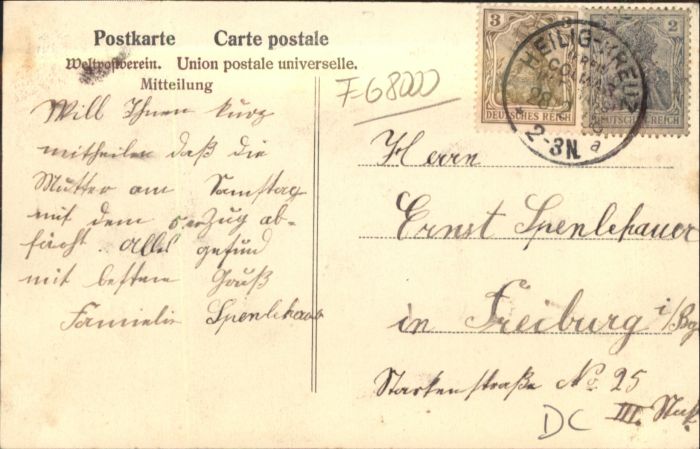 Postkarte Carte postale
Weltpostverein. Union postale universelle.
Mitteilung
F-68000
Will Ihnen kurz
mittheilen daß die
Mutter am Samstag
mit dem 5 er Zug ab-
fährt. Alles gesund
mit bestem Gruß
Familie Spenlehauer
3
DEUTSCHES REICH
2
DEUTSCHES REICH
HEILIG-KREUZ
2-3N.
a
Herrn
Ernst Spenlehauer
in Freiburg i/Bg
Starkenstraße No. 25
III. Stock
DC